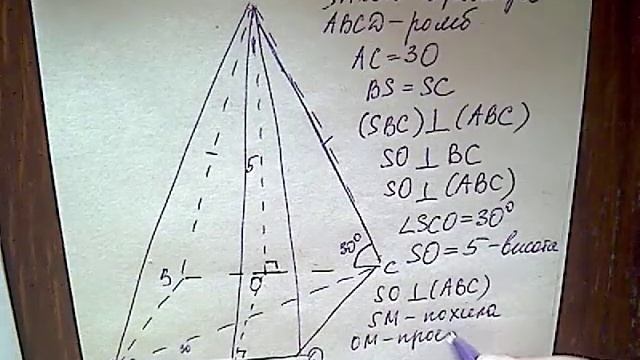 ABCD - ромб
AC = 30
BS = SC
(SBC) ⊥ (ABC)
SO ⊥ BC
SO ⊥ (ABC)
∠SCO = 30°
SO = 5 - висота
SO ⊥ (ABC)
SM - похила
OM - проє
5
30°
B
O
C
30